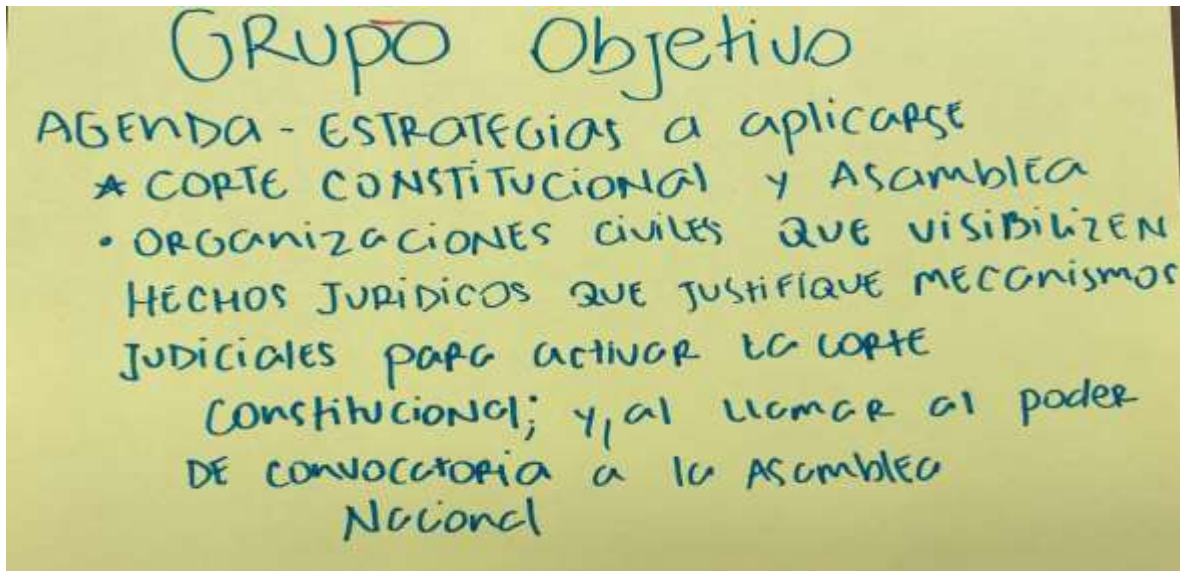 GRUPO Objetivo
AGENDA - ESTRATEGIAS a aplicarse
* CORTE CONSTITUCIONAL y ASamblea
• ORGanizaciones civiles que visibilizen
HECHOS JURIDICOS QUE JUSTIFIQUE MECanismos
JUDICIALES para activar la corte
Constitucional; y, al llamar al poder
DE convocatoria a la Asamblea
Nacional